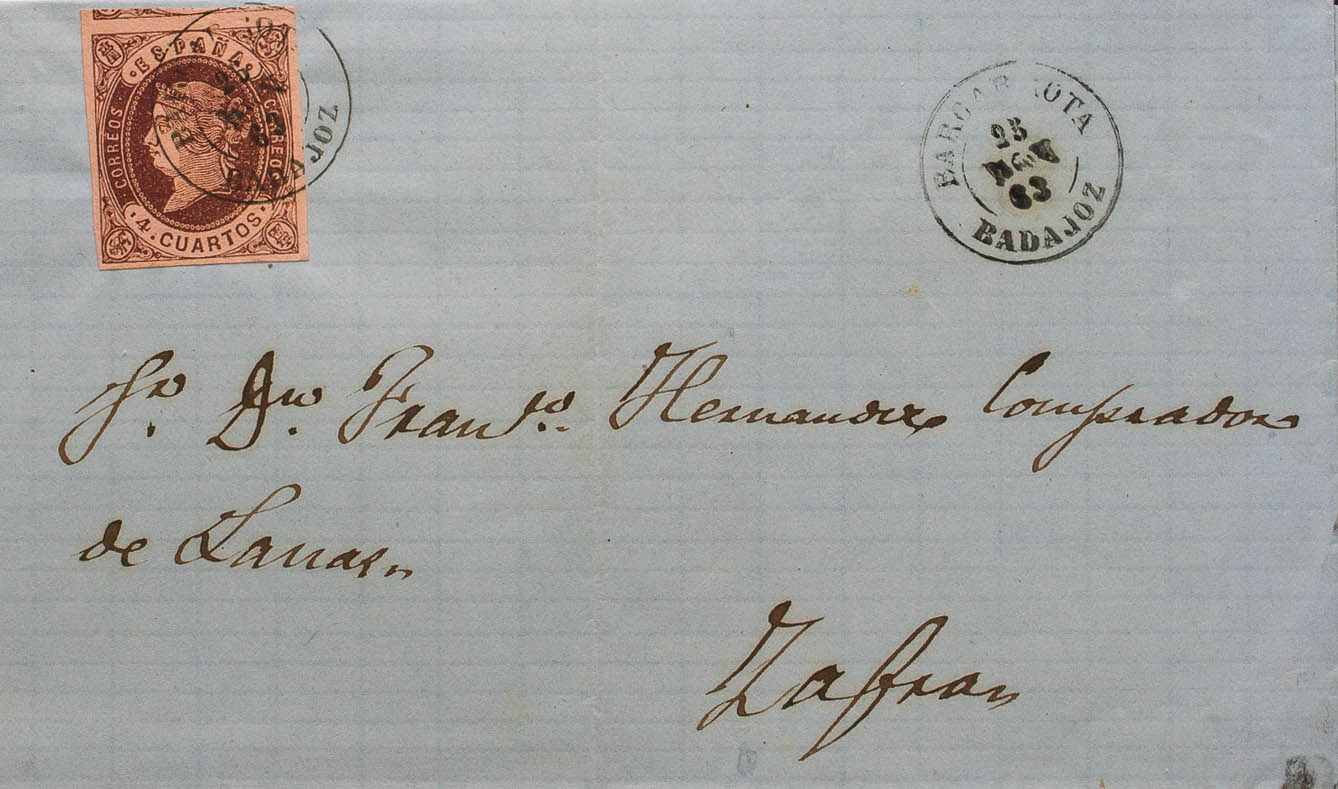 ESPAÑA
CORREOS
CORREOS
4 CUARTOS.
BADAJOZ
BARCARROTA
25
NOV
63
BADAJOZ
Sr. Dn. Franco. Hernandez Comprador
de Lanas
Zafra